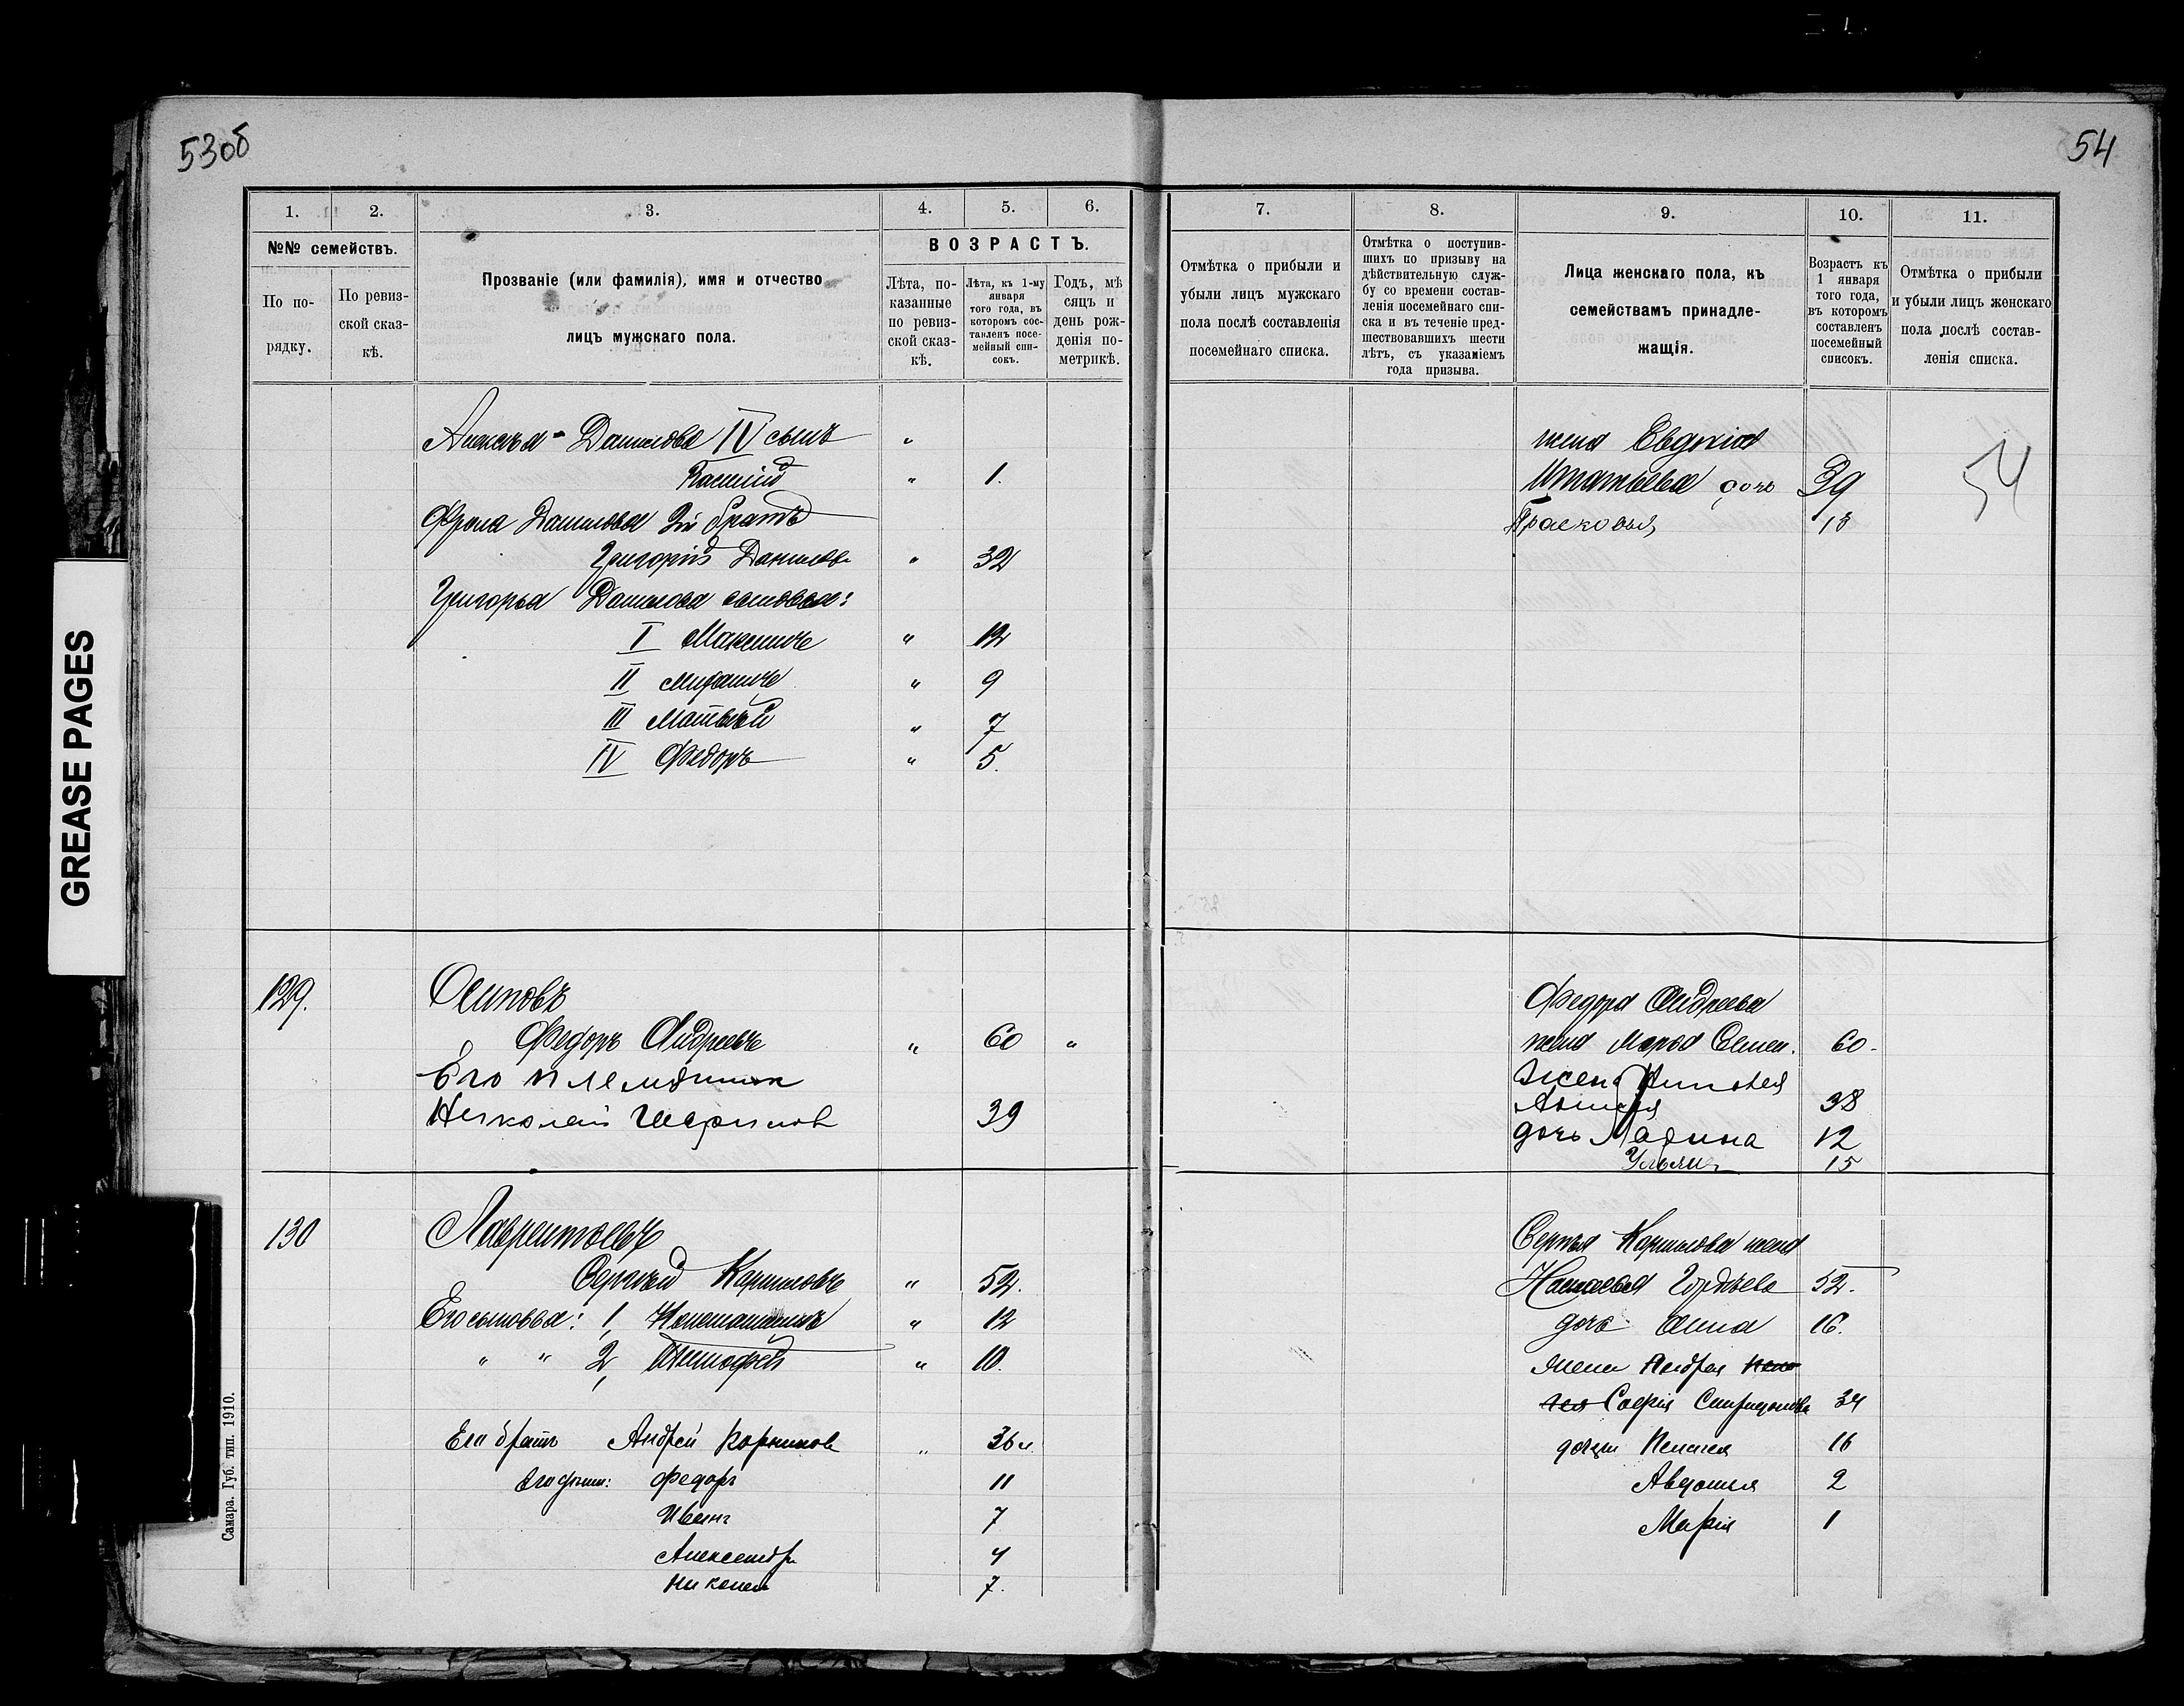 53об
54
1.
2.
3.
4.
5.
6.
№№ семействъ.
ВОЗРАСТЪ.
По по-
рядку.
По ревиз-
ской сказ-
кѣ.
Прозваніе (или фамилія), имя и отчество
лицъ мужскаго пола.
Лѣта, по-
казанные
по ревиз-
ской сказ-
кѣ.
Лѣта, къ 1-му
января
того года, въ
которомъ сос-
тавленъ посе-
мейный спи-
сокъ.
Годъ, мѣ
сяцъ и
день рож-
денія по-
метрикѣ.
Алексѣя Данилова IV сынъ "
Касьянъ " 1.
Фрола Данилова 3й братъ
Григорій Даниловъ " 32
Григорья Данилова сыновья:
I Максимъ " 12
II Митрофанъ " 9
III Матвѣй " 7
IV Федоръ " 5.
129. Осиповъ
Федоръ Андреевъ " 60 "
Его племянник
Николай 39
130 Лаврентьевъ
Сергѣй Карпиловъ " 52.
Его сыновья: 1, Константинъ " 12
" " 2, Тимофей " 10.
Его братъ Андрей Корнилов " 36
Федоръ 11
Иванъ 7
Александръ 4
Николай 7.
Самара. Губ. тип. 1910.
7.
8.
9.
10.
11.
Отмѣтка о прибыли и
убыли лицъ мужскаго
пола послѣ составленія
посемейнаго списка.
Отмѣтка о поступив-
шихъ по призыву на
дѣйствительную служ-
бу со времени состав-
ленія посемейнаго спи-
ска и въ теченіе пред-
шествовавшихъ шести
лѣтъ, съ указаніемъ
года призыва.
Лица женскаго пола, къ
семействамъ принадле-
жащія.
Возрастъ къ
1 января
того года,
въ которомъ
составленъ
посемейный
списокъ.
Отмѣтка о прибыли
и убыли лицъ женскаго
пола послѣ состав-
ленія списка.
жена Евдокія
Игнатьева дочь 39
Прасковья 13
54
Федора Андреева
жена Марья Семен. 60.
жена Николая
38
дочь Марина 12
Ульяна 15
Сергѣя Карпилова жена
Настасья Гордѣева 52.
дочь Анна 16.
жена Андрея
Софія Спиридонова 34
дочери Пелагея 16
Авдотья 2
Марія 1
GREASE PAGES